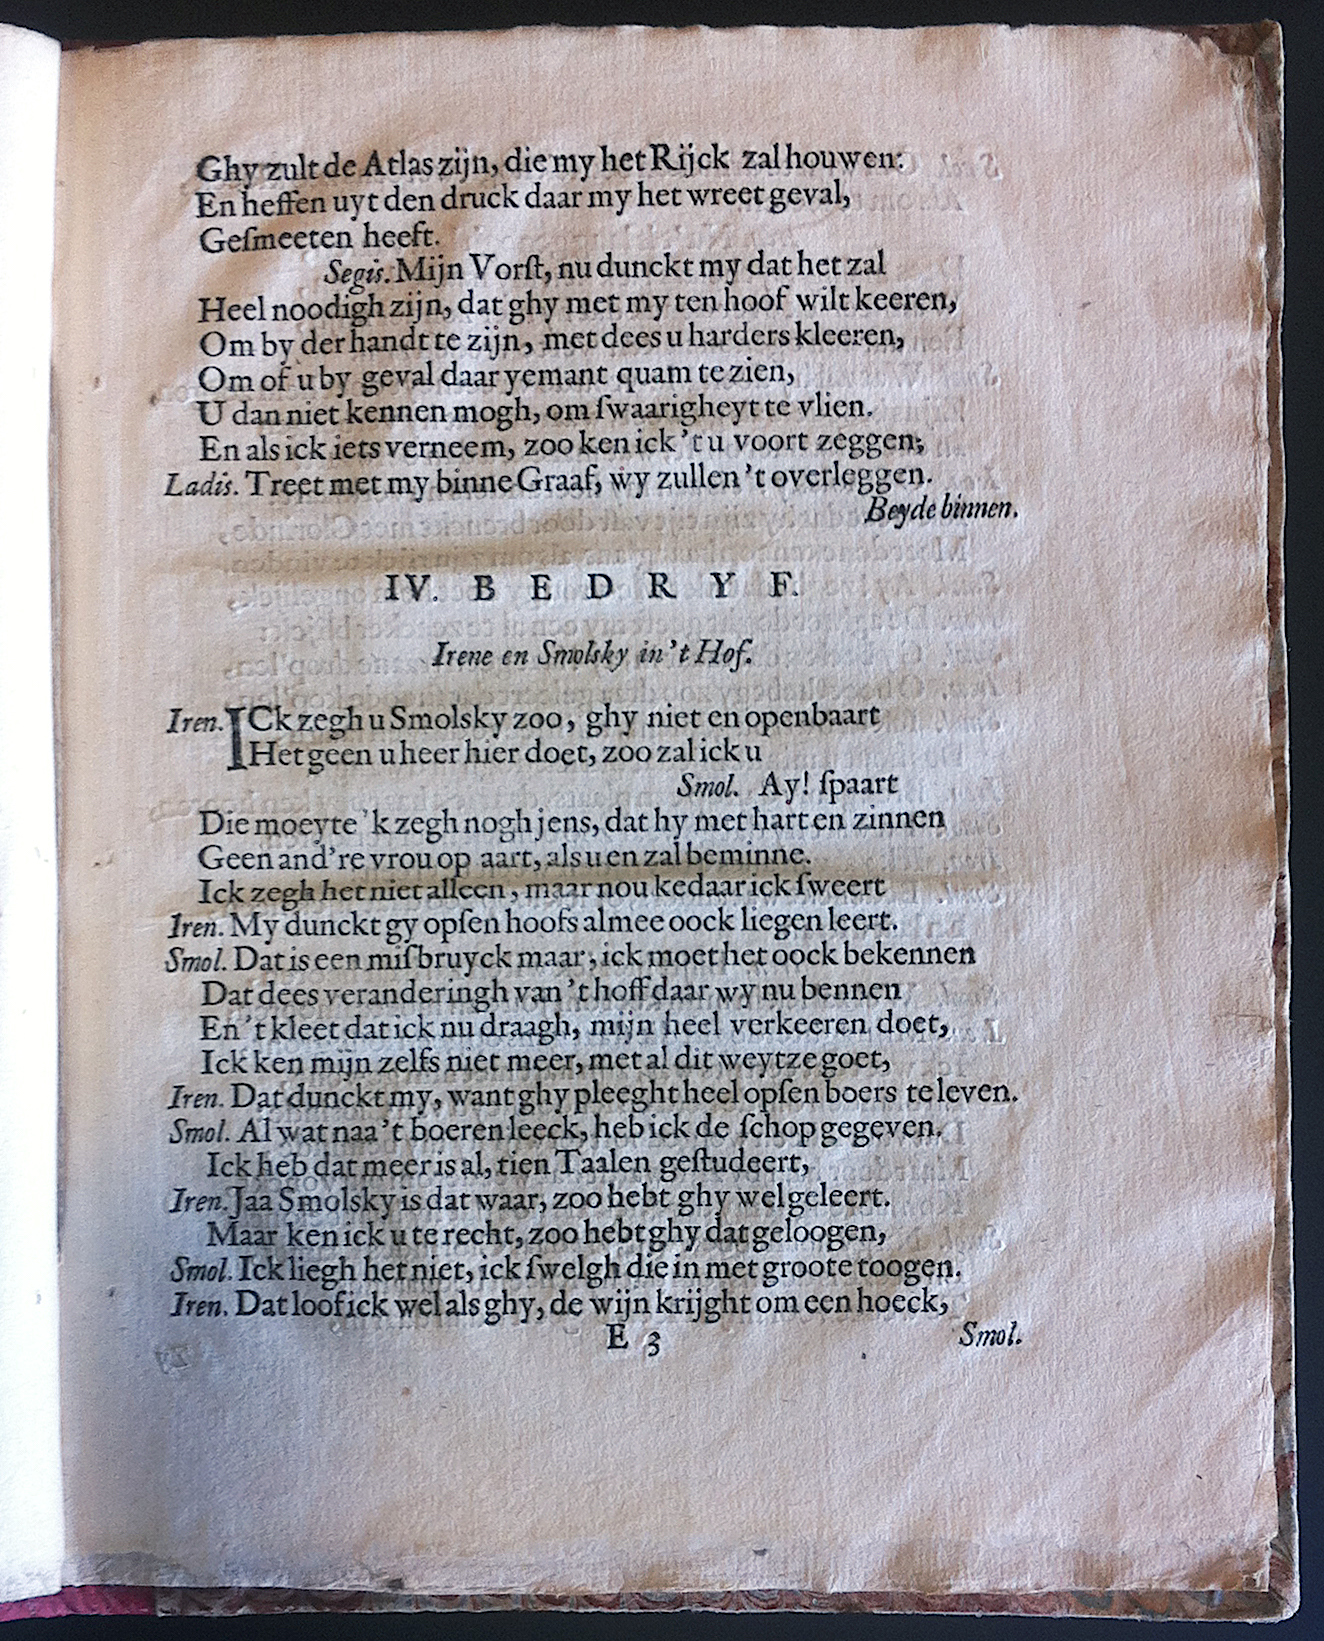 Ghy zult de Atlas zijn, die my het Rijck zal houwen:
En heffen uyt den druck daar my het wreet geval,
Geſmeeten heeft.
Segis. Mijn Vorſt, nu dunckt my dat het zal
Heel noodigh zijn, dat ghy met my ten hoof wilt keeren,
Om by der handt te zijn, met dees u harders kleeren,
Om of u by geval daar yemant quam te zien,
U dan niet kennen mogh, om ſwaarigheyt te vlien.
En als ick iets verneem, zoo ken ick 't u voort zeggen;
Ladis. Treet met my binne Graaf, wy zullen 't overleggen.
Beyde binnen.
IV. BEDRYF.
Irene en Smolsky in 't Hof.
Iren. ICk zegh u Smolsky zoo, ghy niet en openbaart
Het geen u heer hier doet, zoo zal ick u
Smol. Ay! ſpaart
Die moeyte 'k zegh nogh jens, dat hy met hart en zinnen
Geen and're vrou op aart, als u en zal beminne.
Ick zegh het niet alleen, maar nou kedaar ick ſweert
Iren. My dunckt gy opſen hoofs almee oock liegen leert.
Smol. Dat is een miſbruyck maar, ick moet het oock bekennen
Dat dees veranderingh van 't hoff daar wy nu bennen
En 't kleet dat ick nu draagh, mijn heel verkeeren doet,
Ick ken mijn zelfs niet meer, met al dit weytze goet,
Iren. Dat dunckt my, want ghy pleeght heel opſen boers te leven.
Smol. Al wat naa 't boeren leeck, heb ick de ſchop gegeven.
Ick heb dat meer is al, tien Taalen geſtudeert,
Iren. Jaa Smolsky is dat waar, zoo hebt ghy wel geleert.
Maar ken ick u te recht, zoo hebt ghy dat geloogen,
Smol. Ick liegh het niet, ick ſwelgh die in met groote toogen.
Iren. Dat loof ick wel als ghy, de wijn krijght om een hoeck,
E 3 Smol.